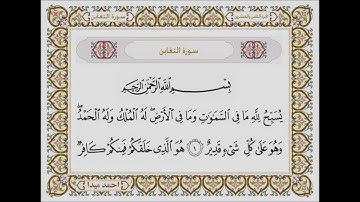 سورة التغابن
الجزء الثامن والعشرون
سورة التغابن
بِسْمِ اللَّهِ الرَّحْمَٰنِ الرَّحِيمِ
يُسَبِّحُ لِلَّهِ مَا فِي السَّمَٰوَٰتِ وَمَا فِي الْأَرْضِ ۖ لَهُ الْمُلْكُ وَلَهُ الْحَمْدُ ۖ
وَهُوَ عَلَىٰ كُلِّ شَيْءٍ قَدِيرٌ ١ هُوَ الَّذِي خَلَقَكُمْ فَمِنكُمْ كَافِرٌ
احمد عبدا